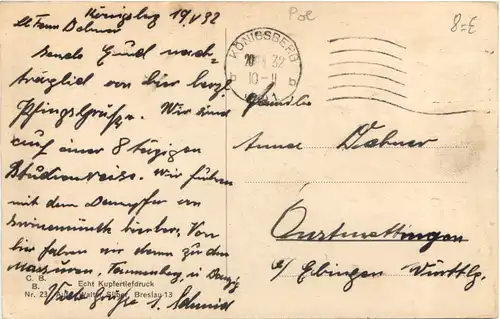 Königsbg 19/V 32
Fam Dahner
Sende Euch nach-
träglich von hier herzl.
Pfingstgrüße. Wir sind
auf einer 8 tägigen
Studienreise. Wir fuhren
mit dem Dampfer von
Swinemünde hierher. Von
hier fahren wir dann zu den
Masuren, Tannenberg, u Danzig
Viele Grüße s. Schmid
C. B. Echt Kupfertiefdruck
B.
Nr. 23 Walter Breslau 13
KÖNIGSBERG
32
10-11
b b
Pol
8=E
Familie
Anna Dahner
Onstmettingen
b/ Ebingen Württbg.